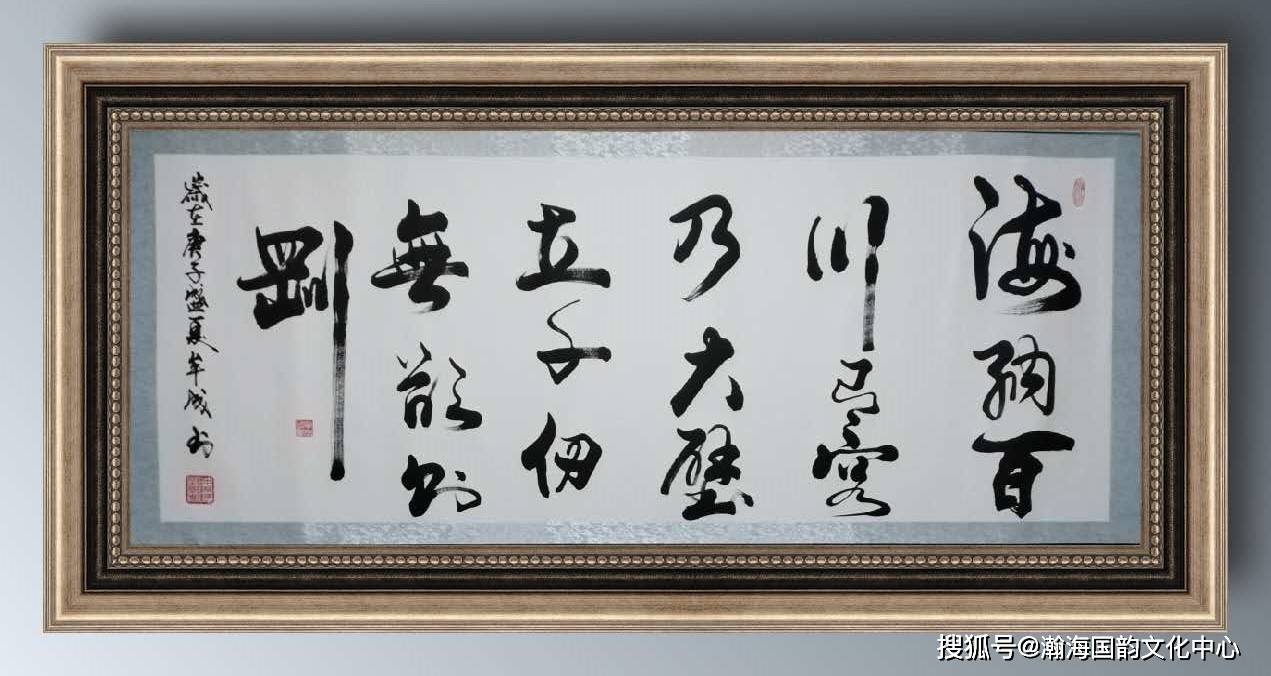 海納百
川有容
乃大壁
立千仞
無欲則
剛
歲在庚子盛夏牟成书
搜狐号@瀚海国韵文化中心